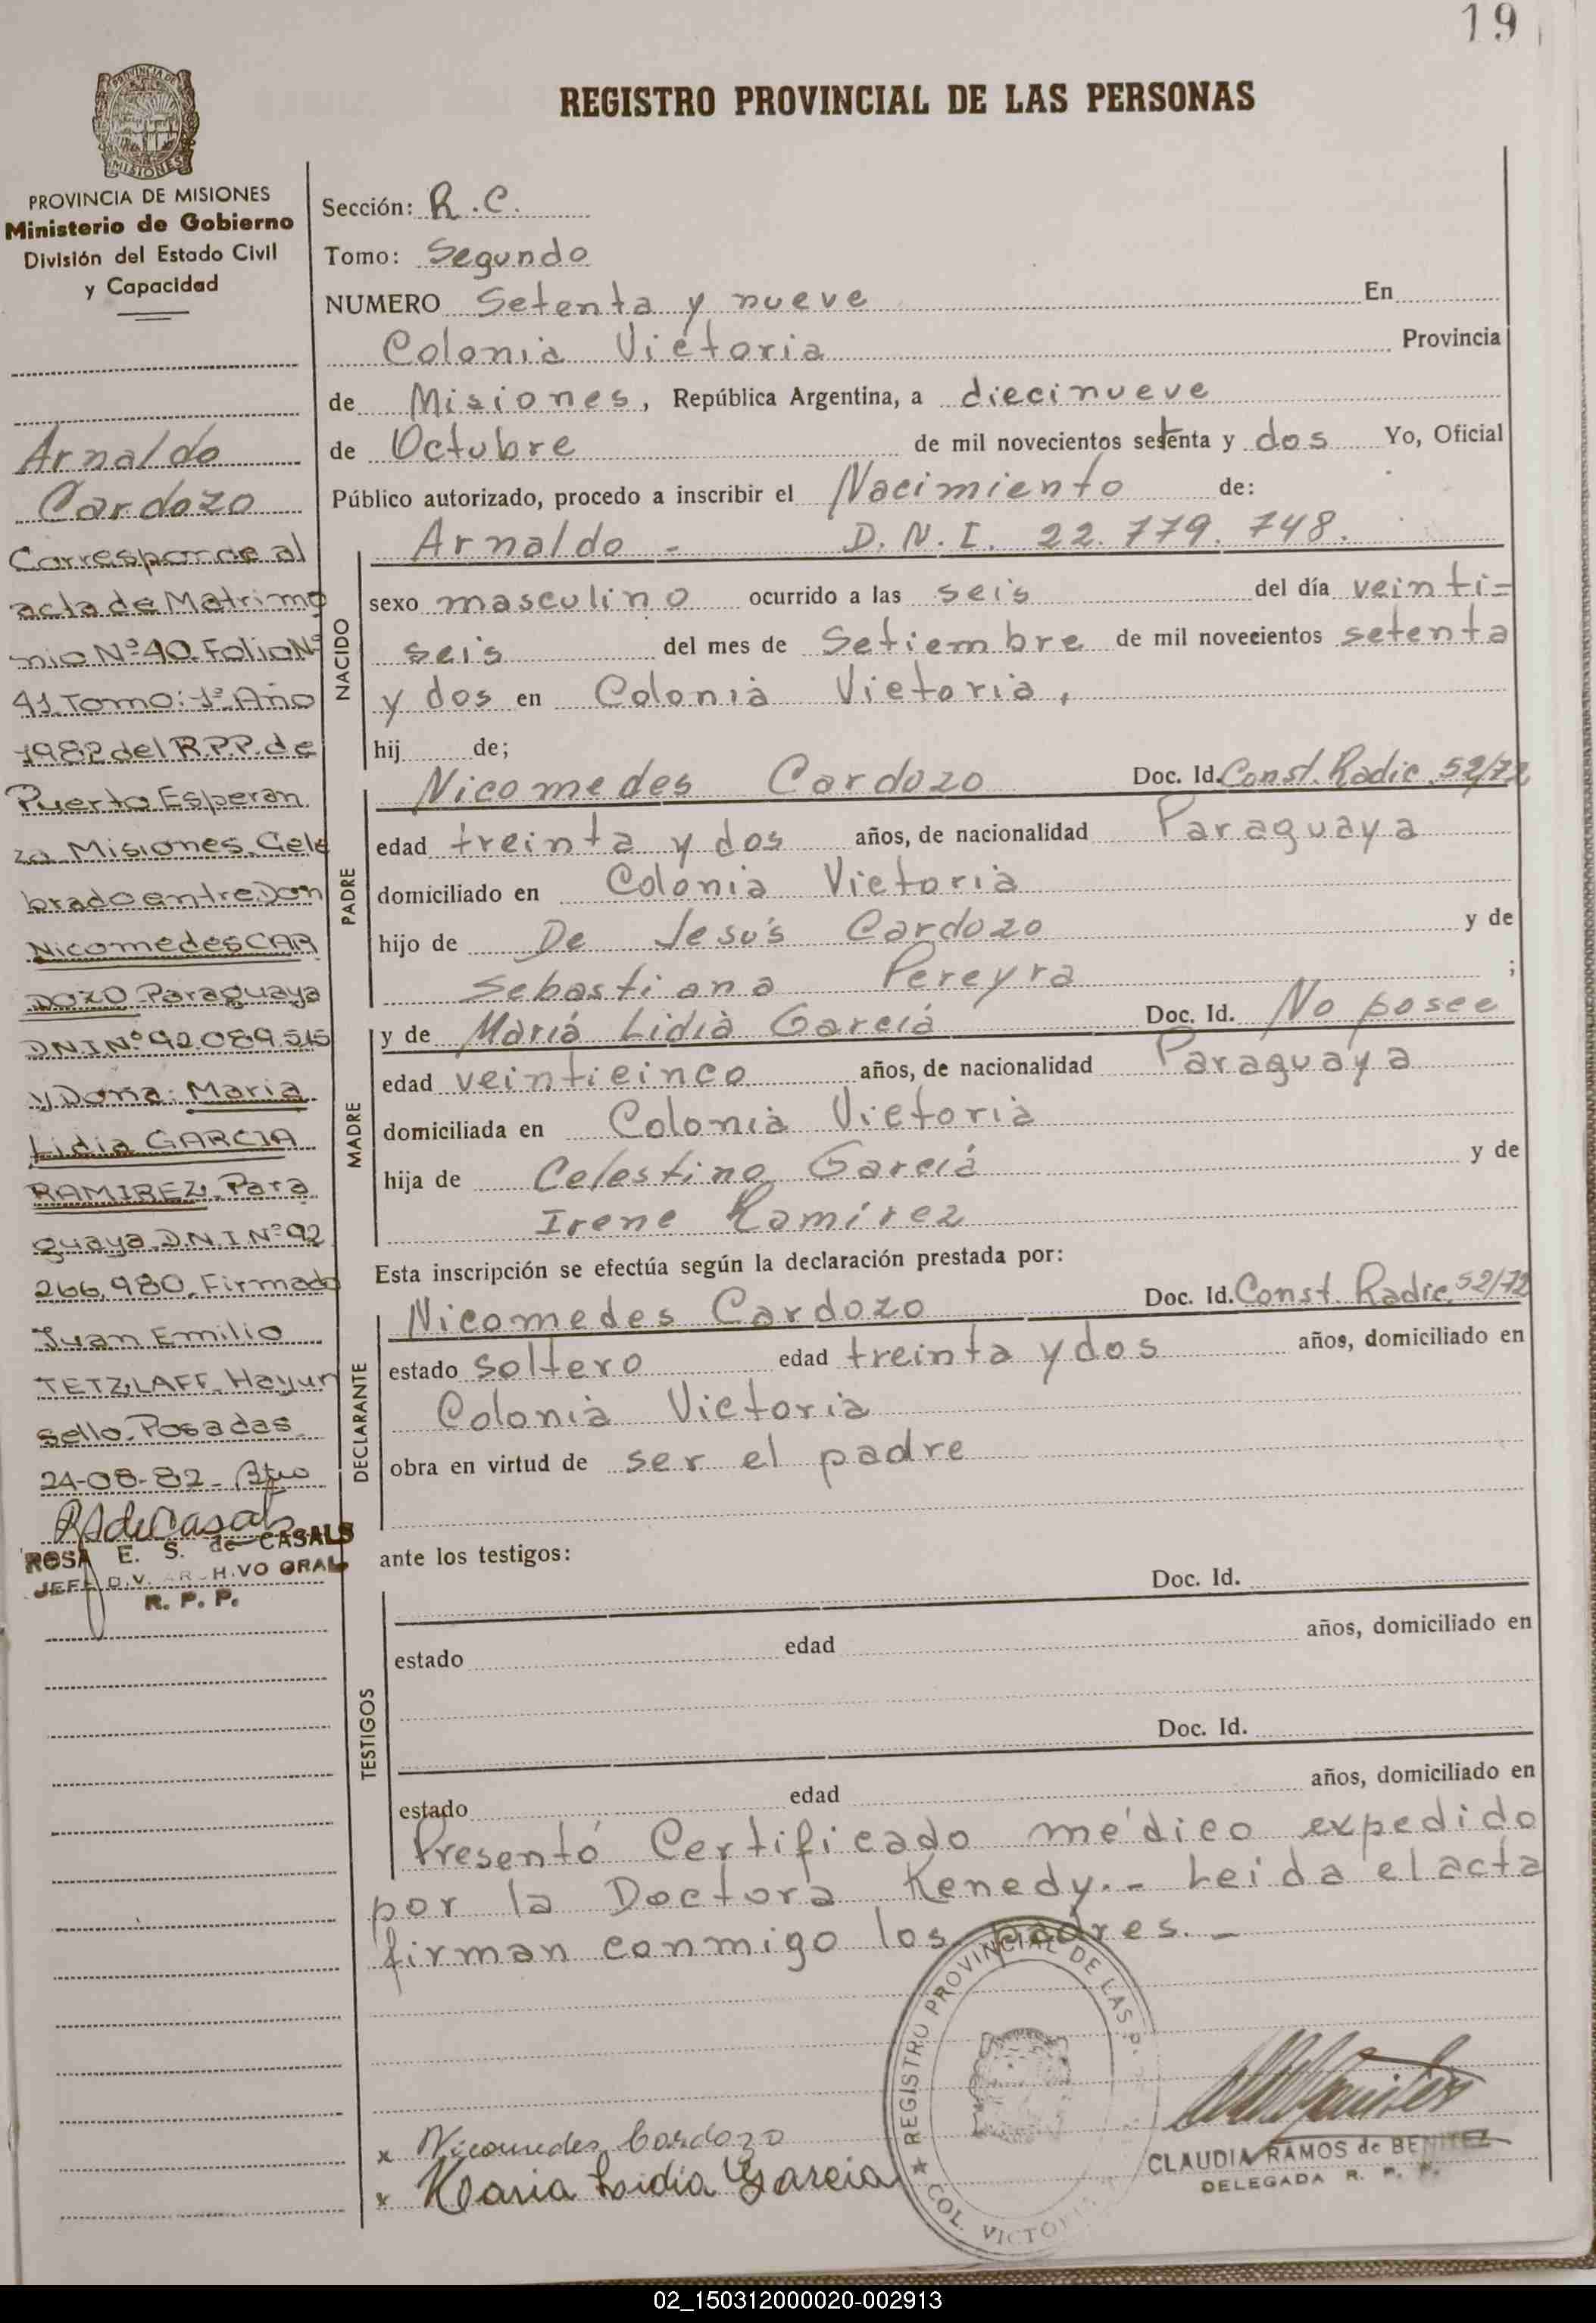 19
REGISTRO PROVINCIAL DE LAS PERSONAS
MISIONES
PROVINCIA DE MISIONES
Ministerio de Gobierno
División del Estado Civil
y Capacidad
Arnaldo
Cardozo
Corresponde al
acta de Matrimo
nio Nº 40. Folio Nº
41 Tomo: 1º Año
1982 del R.P.P. de
Puerto Esperan
za Misiones. Cele
brado entre Don
Nicomedes CAR
DOZO Paraguaya
DNI Nº 92.089.515
y Doña: Maria
Lidia GARCIA
RAMIREZ. Para
guaya. D.N.I Nº 92
266.980. Firmado
Juan Emilio
TETZLAFF. Hay un
sello. Posadas
24-08-82-
ROSA E. S. de CASALS
JEFE DIV. ARCHIVO GRAL
R. P. P.
Sección: R.C.
Tomo: Segundo
NUMERO Setenta y nueve En
Colonia Victoria Provincia
de Misiones, República Argentina, a diecinueve
de Octubre de mil novecientos setenta y dos Yo, Oficial
Público autorizado, procedo a inscribir el Nacimiento de:
Arnaldo - D.N.I. 22.779.748.
NACIDO
sexo masculino ocurrido a las seis del día veinti=
seis del mes de Setiembre de mil novecientos setenta
y dos en Colonia Victoria,
hij de;
Nicomedes Cardozo Doc. Id. Const. Radic. 52/72
PADRE
edad treinta y dos años, de nacionalidad Paraguaya
domiciliado en Colonia Victoria
hijo de De Jesús Cardozo y de
Sebastiana Pereyra ;
y de Mariá Lidia Garciá Doc. Id. No posee
MADRE
edad veinticinco años, de nacionalidad Paraguaya
domiciliada en Colonia Victoria
hija de Celestino Garciá y de
Irene Ramírez
Esta inscripción se efectúa según la declaración prestada por:
Nicomedes Cardozo Doc. Id. Const. Radic. 52/72
DECLARANTE
estado soltero edad treinta y dos años, domiciliado en
Colonia Victoria
obra en virtud de ser el padre
ante los testigos:
Doc. Id.
TESTIGOS
estado edad años, domiciliado en
Doc. Id.
estado edad años, domiciliado en
Presentó Certificado médico expedido
por la Doctora Kenedy.- Leida el acta
firman conmigo los padres.-
REGISTRO PROVINCIAL DE LAS P.
COL. VICTORIA
x Nicomedes Cardozo
x Maria Lidia Garcia
CLAUDIA RAMOS de BENITEZ
DELEGADA R. P. P.
02_150312000020-002913